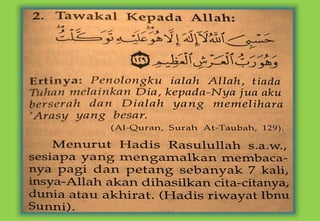 2. Tawakal Kepada Allah:
حَسْبِيَ اللَّهُ لَا إِلَٰهَ إِلَّا هُوَ عَلَيْهِ تَوَكَّلْتُ
وَهُوَ رَبُّ الْعَرْشِ الْعَظِيمِ ﴿١٢٩﴾
Ertinya: Penolongku ialah Allah, tiada
Tuhan melainkan Dia, kepada-Nya jua aku
berserah dan Dialah yang memelihara
'Arasy yang besar.
(Al-Quran, Surah At-Taubah, 129).
Menurut Hadis Rasulullah s.a.w.,
sesiapa yang mengamalkan membaca-
nya pagi dan petang sebanyak 7 kali,
insya-Allah akan dihasilkan cita-citanya,
dunia atau akhirat. (Hadis riwayat Ibnu
Sunni).